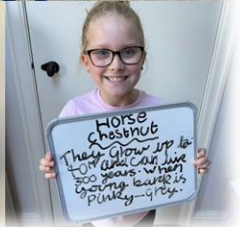 Horse
chestnut
They Grow up to
40M and Can live
300 years. When
young bark is
Pinky-Grey.